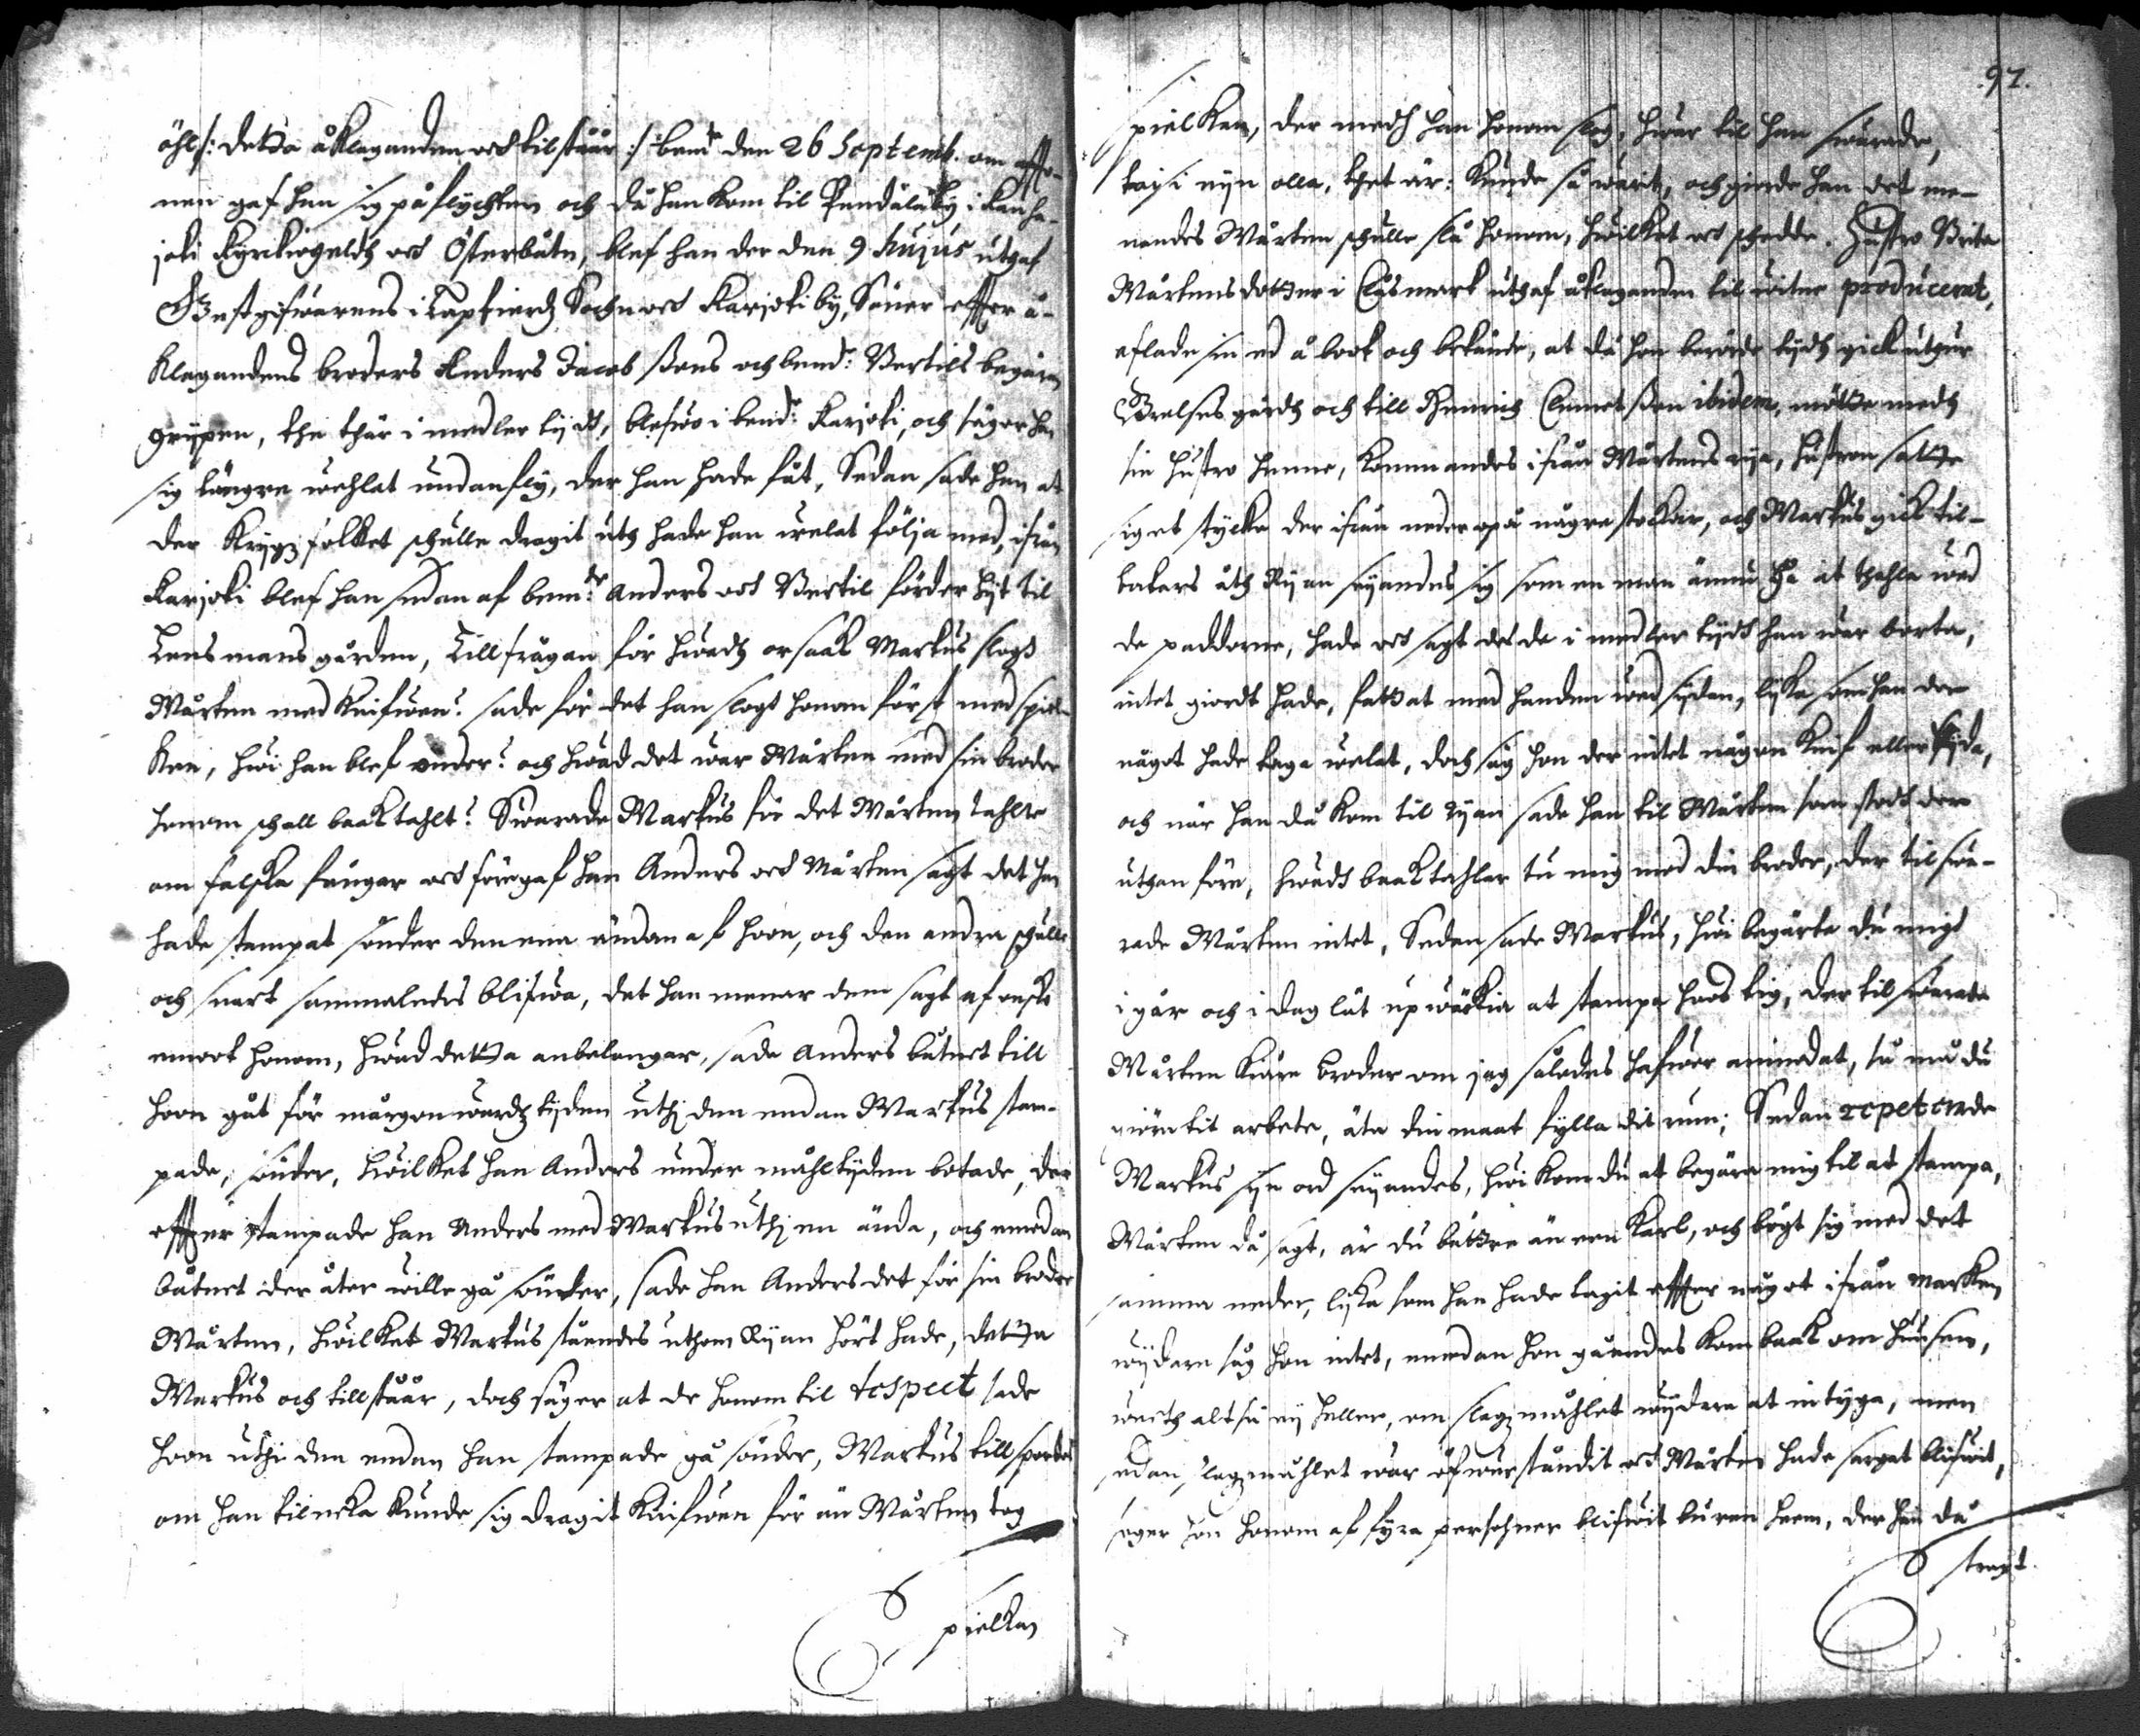 öhl /: detta åklaganden och tilståår :/ bem:te den 26 Septemb. om affto-
nen gaf han sig på flychten och då han kom til Pendälä by i Kauha-
joki Kyrkiogeldh och Österbotn, blef han der den 9 hujus utaf
Gästgifwarens i Lapfierdz Sochn och Karjoki by, Söner effter å-
klagandens broders Anders Jacobssons och bem:te Bertils begäran
grijpen, the thär i medler tijdh, blefwo i bem:te Karjoki, och säger han
sig längre wehlat undanfly, der han hade fåt, Sedan sade han at
der Krygzfolket schulle dragit uth hade han welat följa med, ifrån
Karjoki blef han sedan af bem:te Anders och Bertil förder hijt til
Lensmans gården, Tillfrågan för hwadh orsaak Markus slogh
Mårten med Knifwen? sade för det han slogh honom först med spiel-
ken, hwi han blef under? och hwad det war Mårten med sin broder
honom schall baaktahlt? Swarade Markus för det Mårten tahlte
om falska fångar och föregaf han Anders och Mårten sagt det han
hade stampat sönder den ena ändan af hoon, och den andra schulle
och snart sammaledes blifwa, det han menar dem sagt af
emoot honom, hwad detta anbelangar, sade Anders båtnet till
hoon gåt för morgonwardz tijden uthj den endan Markus stam-
pade, sönder, hwilket han Anders under måhltijden botade, der
effter stampade han Anders med Markus uthj en ända, och emedan
båtnet der åter wille gå sönder, sade han Anders det för sin broder
Mårten, hwilket Markus ståendes uthom Rijan hört hade, detta
Markus och tillståår, doch säger at de honom til despect sade
hoon uthi den endan han stampade gå sönder, Markus tillspordes
om han til neka kunde sig dragit Knifwen för än Mårten tog
spielkan
97.
spielkan, der medh han honom slog, hwar til han swarade,
taisi nijn olla, thet är: kunde så warit, och giorde han det me-
nandes Mårten schulle slå honom, hwilket och schedde. Hustro Brita
Mårtensdotter i Clåsmark utaf åklaganden til witne producerat,
aflade sin ed å book och bekände, at då hon berörde tijdh gick uthur
gårdh och till Hinrich Clemetsson ibidem, mötte medh
sin hustro henne, kommandes ifrån Mårtens rija, hustron satte
sig et stycke der ifrån neder opå några stockar, och Markus gick til-
bakars åth Rijan seijandes sig som en man ännu få at tahla wed
de paddorne, hade och sagt det de i medler tijdh han war borta,
intet giordt hade, fattat med handen wed sijdan, lijka som han der
något hade taga welat, doch såg hon der intet någon Knif eller slijda,
och när han då kom til rijan sade han til Mårten som stodh der
uthan före, hwadh baaktahlar tu mig med din broder, der til swa-
rade Mårten intet, Sedan sade Markus, hwi begärte du migh
igår och i dag låt upwäckia at stampa hoos tig, der til swarade
Mårten Kiäre broder om jag således hafwer ämnat, så må du
giöra tit arbete, äta din maat fylla dit rum; Sedan repeterade
Markus sijn ord seijandes, hwi kom du at begära mig til at stampa,
Mårten då sagt, är du bättre än een Karl, och bögt sig med det
samma neder, lijka som han hade tagit effter något ifrån marken
wijdare såg hon intet, emedan hon gåendes kom baak om huusen,
weeth altså eij heller, om slagzmåhlet wijdare at intyga, men
sedan slagzmåhlet war öfwerståndit och Mårten hade sargat blifwit,
säger hon honom af fyra persohner blifwit buren heem, der han då
straxt